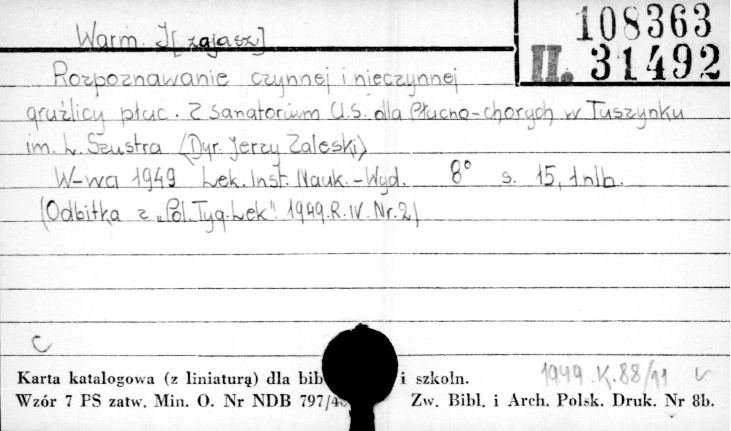 108363
II. 31492
Warm. I[zajasz]
Rozpoznawanie czynnej i nieczynnej
gruźlicy płuc. Z sanatorium U.S. dla Płucno-chorych w Tuszynku
im. L. Szustra (Dyr. Jerzy Zaleski)
W-wa 1949 Lek. Inst. Nauk.-Wyd. 8° s. 15, 1 nlb.
(Odbitka z „Pol. Tyg. Lek" 1949. R. IV. Nr. 2)
C
1949. K. 88/11
Karta katalogowa (z liniaturą) dla bib i szkoln.
Wzór 7 PS zatw. Min. O. Nr NDB 797/4 Zw. Bibl. i Arch. Polsk. Druk. Nr 8b.